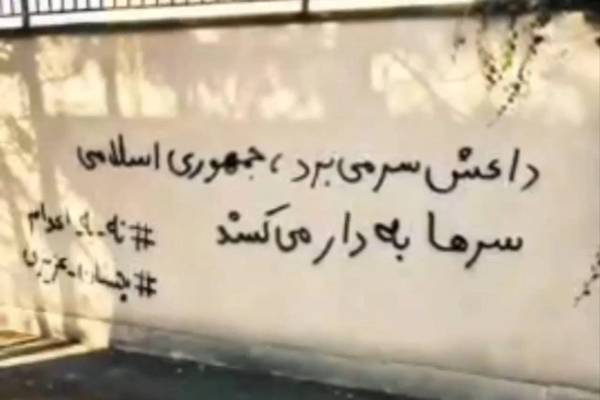 داعش سر می‌برد، جمهوری اسلامی
سرها به دار می‌کشد
#نه_به_اعدام
#پخشان_عزیزی